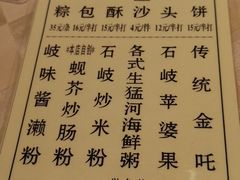 粽 包 酥 沙 头 饼
35元/条 16元/半打 15元/半打 4元/件 12元/半打 15元/半打
传统金吒
石岐苹婆果
各式生猛河海鲜粥
石岐炒米粉
*本店自创*
蚬芥炒肠粉
岐味酱濑粉